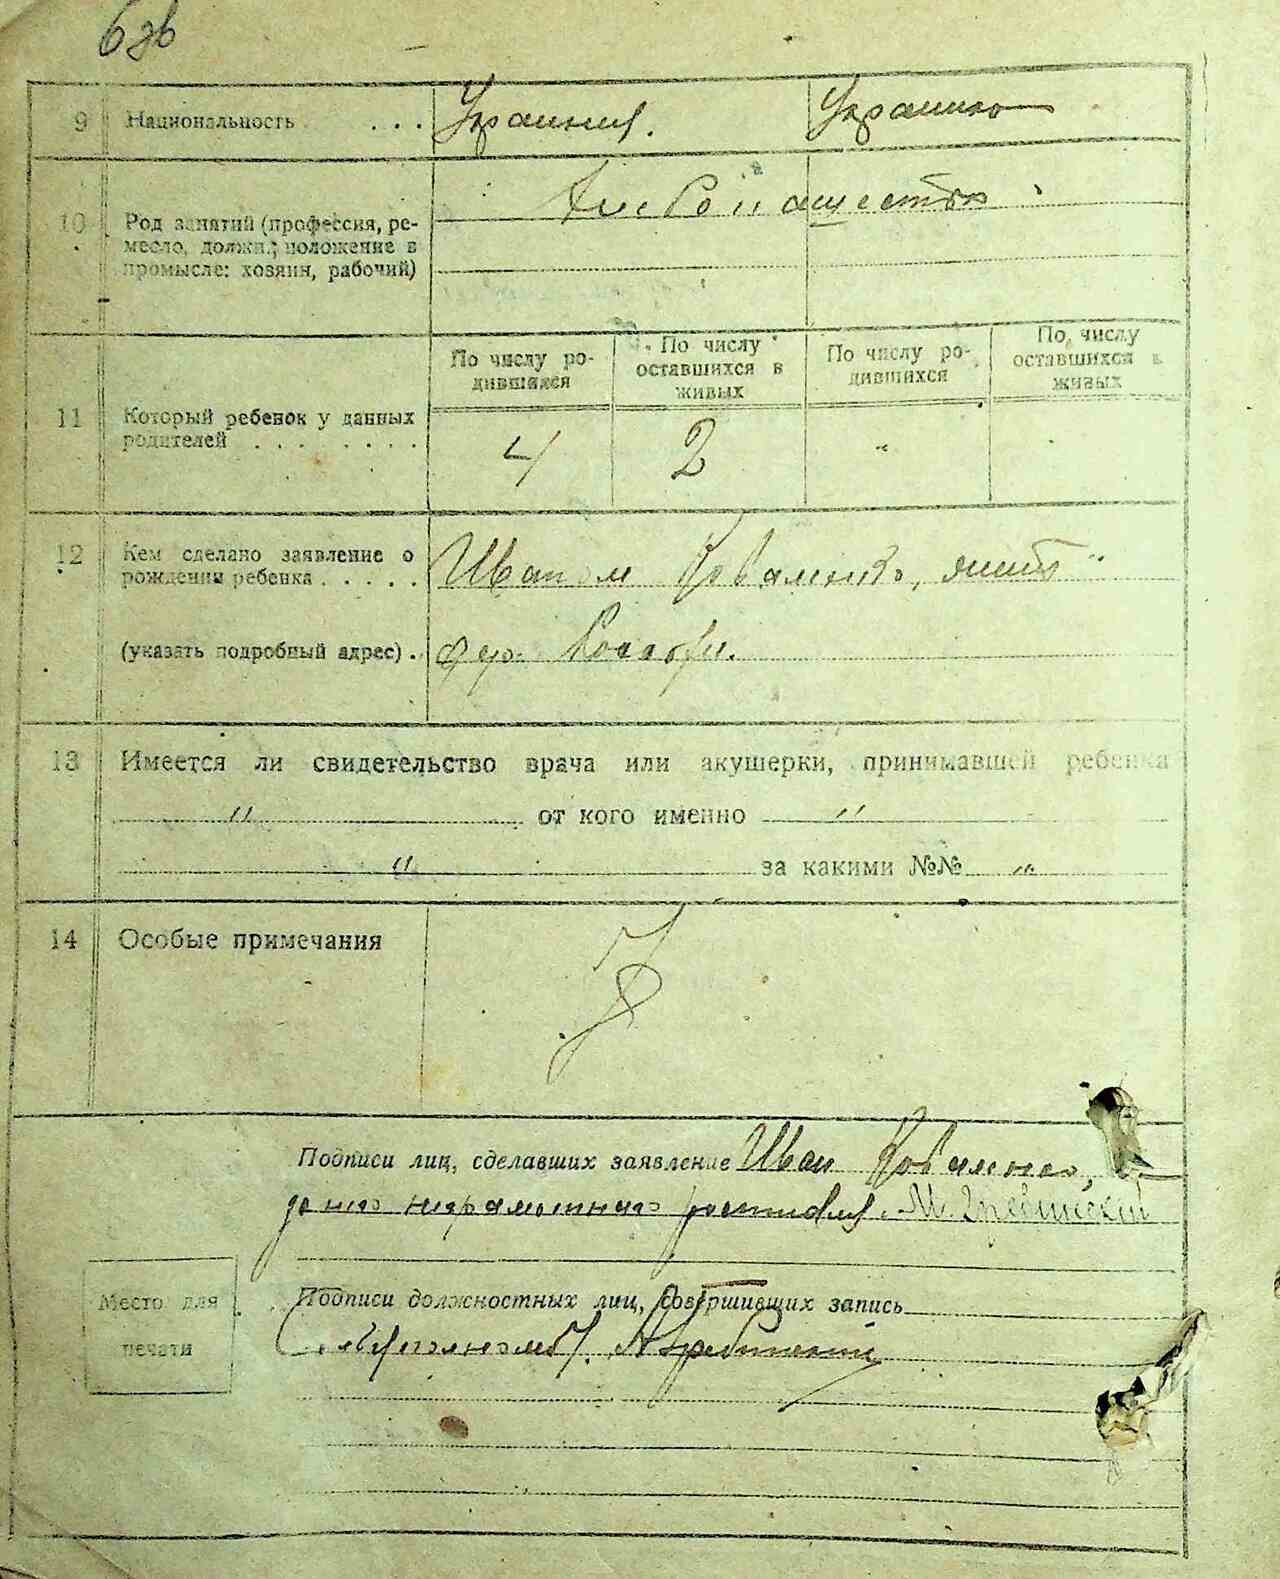 9 Национальность . . . Украинец. Украинка
Хлебопашество
10 Род занятий (профессия, ре-
месло, должн.; положение в
промысле: хозяин, рабочий)
По числу ро-
дившихся
По числу
оставшихся в
живых
По числу ро-
дившихся
По числу
оставшихся в
живых
11 Который ребенок у данных
родителей . . . . . . . .
4 2 "
12 Кем сделано заявление о
рождении ребенка . . . . .
Иваном Коваленко,
(указать подробный адрес) . дер.
13 Имеется ли свидетельство врача или акушерки, принимавшей ребенка
" от кого именно "
" за какими №№ "
14 Особые примечания
Подписи лиц, сделавших заявление Иван Коваленко,
неграмотного
Место для
печати
Подписи должностных лиц, совершивших запись